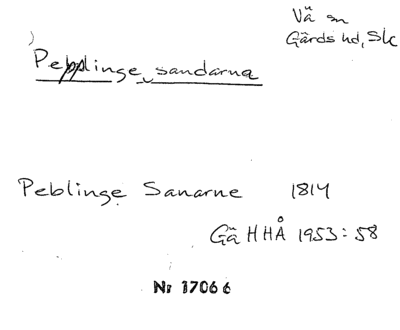 Vä sn
Gärds hd, Sk
Pepplinge sandarna
Peblinge Sanarne 1814
Gä HHÅ 1953:58
Nr 17066